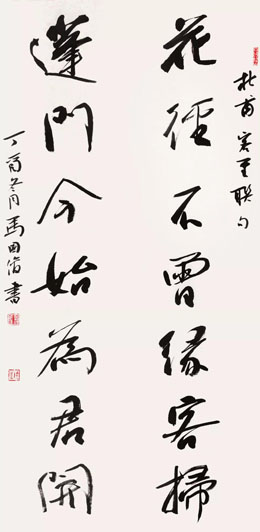 杜甫客至联句
花徑不曾緣客掃
蓬門今始為君開
丁酉冬月馬田偹書